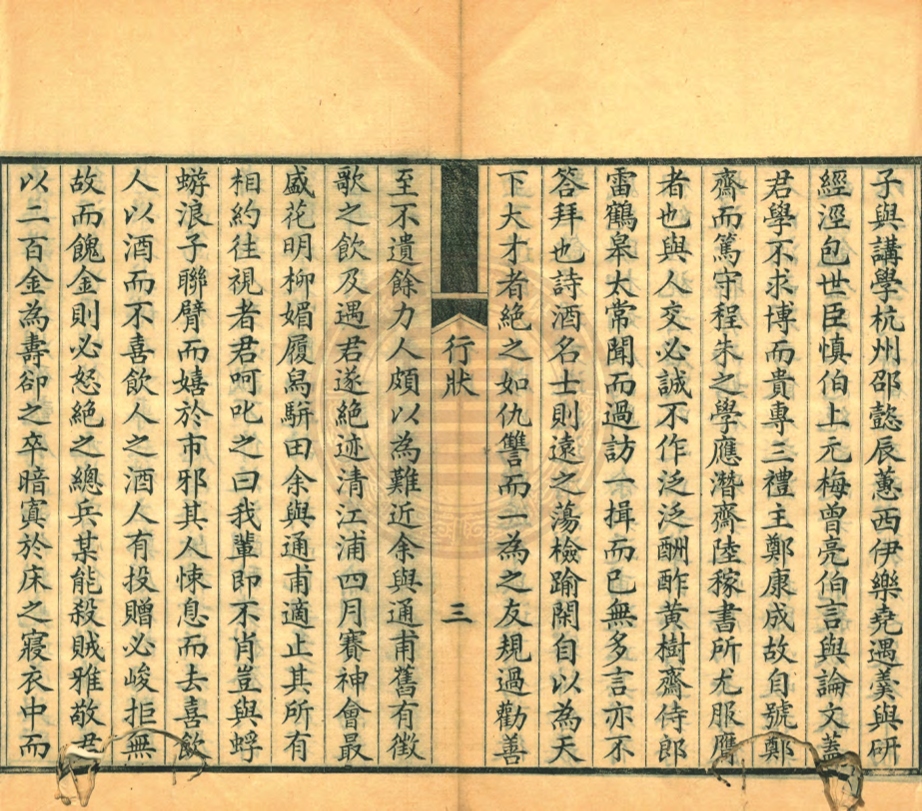 子與講學杭州邵懿辰蕙西伊樂堯遇羹與研
經涇包世臣慎伯上元梅曾亮伯言與論文蓋
君學不求博而貴專三禮主鄭康成故自號鄭
齋而篤守程朱之學應潛齋陸稼書所尤服膺
者也與人交必誠不作泛泛酬酢黄樹齋侍郎
雷鶴皋太常聞而過訪一揖而已無多言亦不
答拜也詩酒名士則遠之蕩檢踰閑自以為天
下大才者絶之如仇讐而一為之友規過勸善
行狀
三
至不遺餘力人頗以為難近余與通甫舊有徵
歌之飲及遇君遂絶迹清江浦四月賽神會最
盛花明柳媚履舄駢田余與通甫適止其所有
相約往視者君呵叱之曰我輩即不肖豈與蜉
蝣浪子聯臂而嬉於市邪其人悚息而去喜飲
人以酒而不喜飲人之酒人有投贈必峻拒無
故而餽金則必怒絶之總兵某能殺賊雅敬君
以二百金為壽卻之卒暗寘於床之寢衣中而